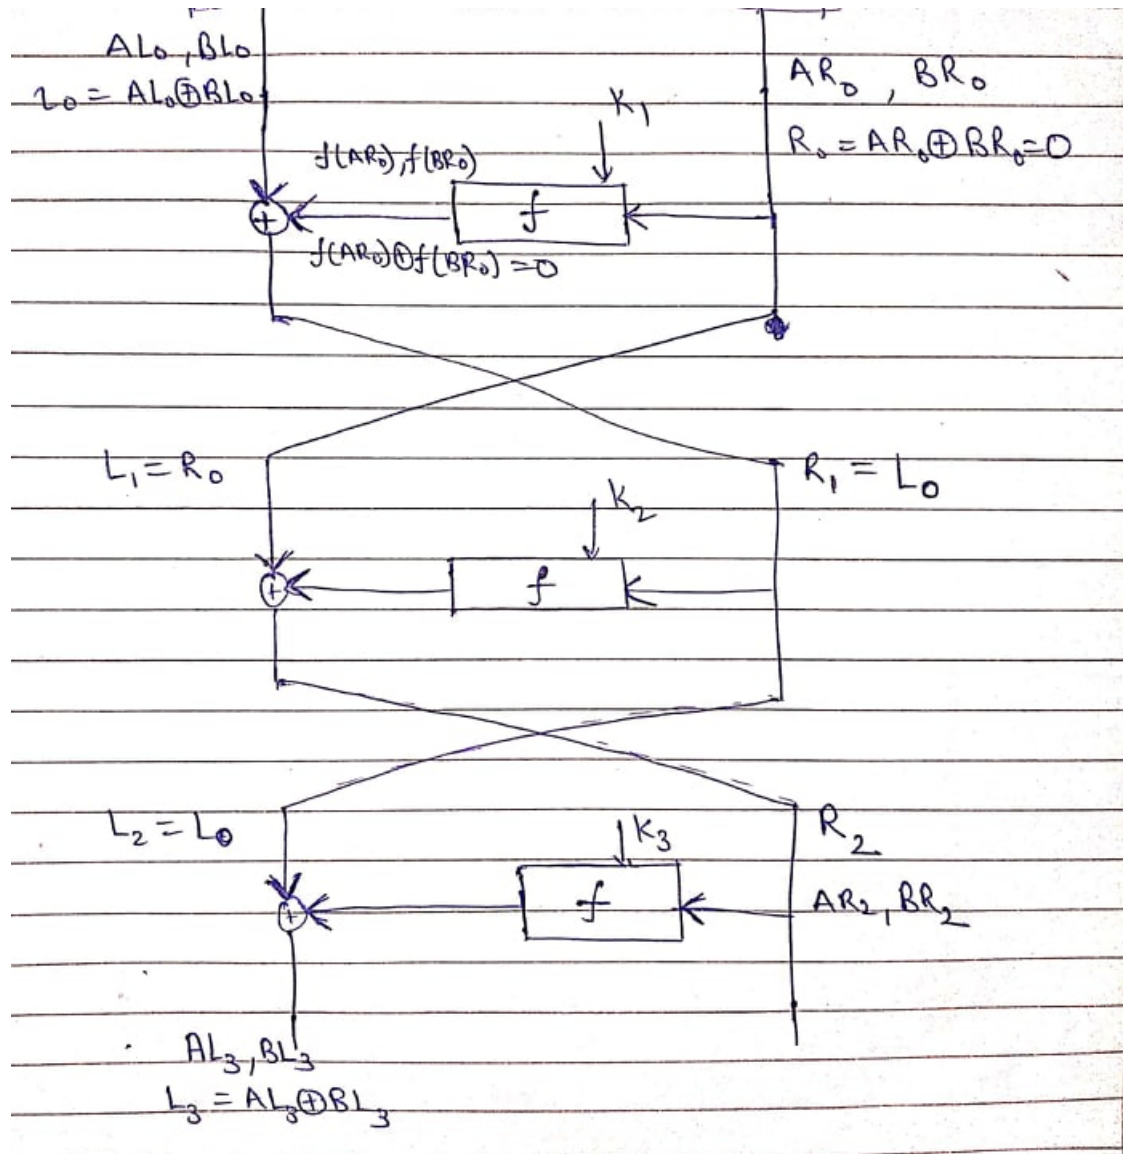 AL₀, BL₀
L₀ = AL₀⊕BL₀
AR₀, BR₀
R₀ = AR₀⊕BR₀=0
K₁
f(AR₀), f(BR₀)
f
+
f(AR₀)⊕f(BR₀)=0
L₁=R₀
R₁=L₀
K₂
f
+
L₂=L₀
R₂
K₃
f
+
AR₂, BR₂
AL₃, BL₃
L₃ = AL₃⊕BL₃